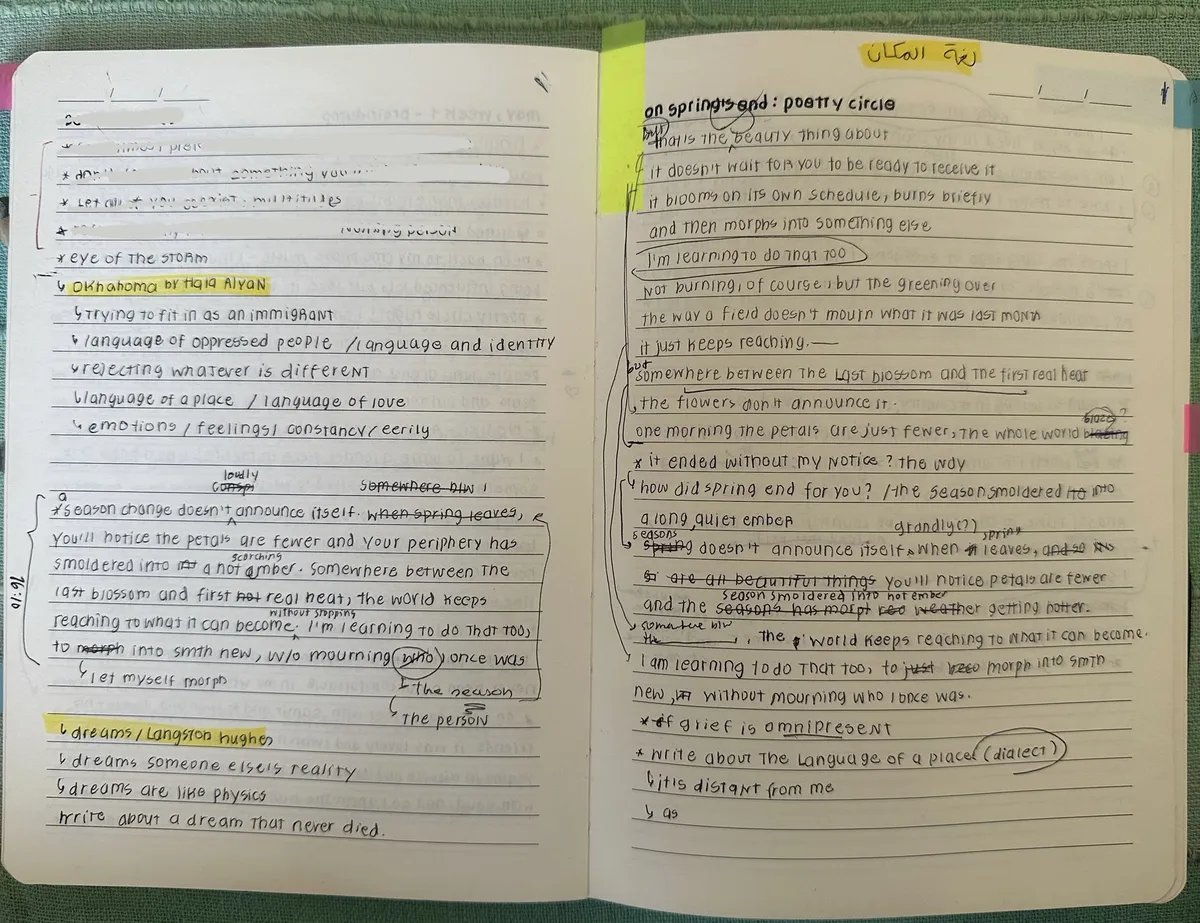 * Let all * you
* eye of the storm
↳ Okhahoma by Hala Alyan
↳ trying to fit in as an immigrant
↳ language of oppressed people / language and identity
↳ rejecting whatever is different
↳ language of a place / language of love
↳ emotions / feelings / constancy / eerily
loudly
somewhere btw
a
* season change doesn't announce itself. when spring leaves,
you'll notice the petals are fewer and your periphery has
scorching
smoldered into a hot amber. somewhere between the
last blossom and first hot real heat, the world keeps
without stopping
reaching to what it can become. I'm learning to do that too,
to morph into smth new, w/o mourning who I once was
↳ let myself morph
↳ the season
↳ the person
16:10
↳ dreams / Langston hughes
↳ dreams someone else's reality
↳ dreams are like physics
write about a dream that never died.
لغة المكان
on spring's end: poetry circle
but
that is the beauty thing about
it doesn't wait for you to be ready to receive it
it blooms on its own schedule, burns briefly
and then morphs into something else
I'm learning to do that too
Not burning, of course, but the greening over
the way a field doesn't mourn what it was last month
it just keeps reaching.
but
somewhere between the last blossom and the first real heat
the flowers don't announce it.
blaze?
one morning the petals are just fewer, the whole world blazing
* it ended without my notice? the way
↳ how did spring end for you? / the season smoldered into
a long quiet ember
seasons grandly(?) spring
spring doesn't announce itself, when leaves, and so
are all beautiful things you'll notice petals are fewer
season smoldered into hot ember
and the seasons has morph weather getting hotter.
somewhere btw
the, the world keeps reaching to what it can become.
I am learning to do that too, to just morph into smth
new, without mourning who I once was.
* of grief is omnipresent
* write about the language of a place (dialect)
↳ it is distant from me
↳ as